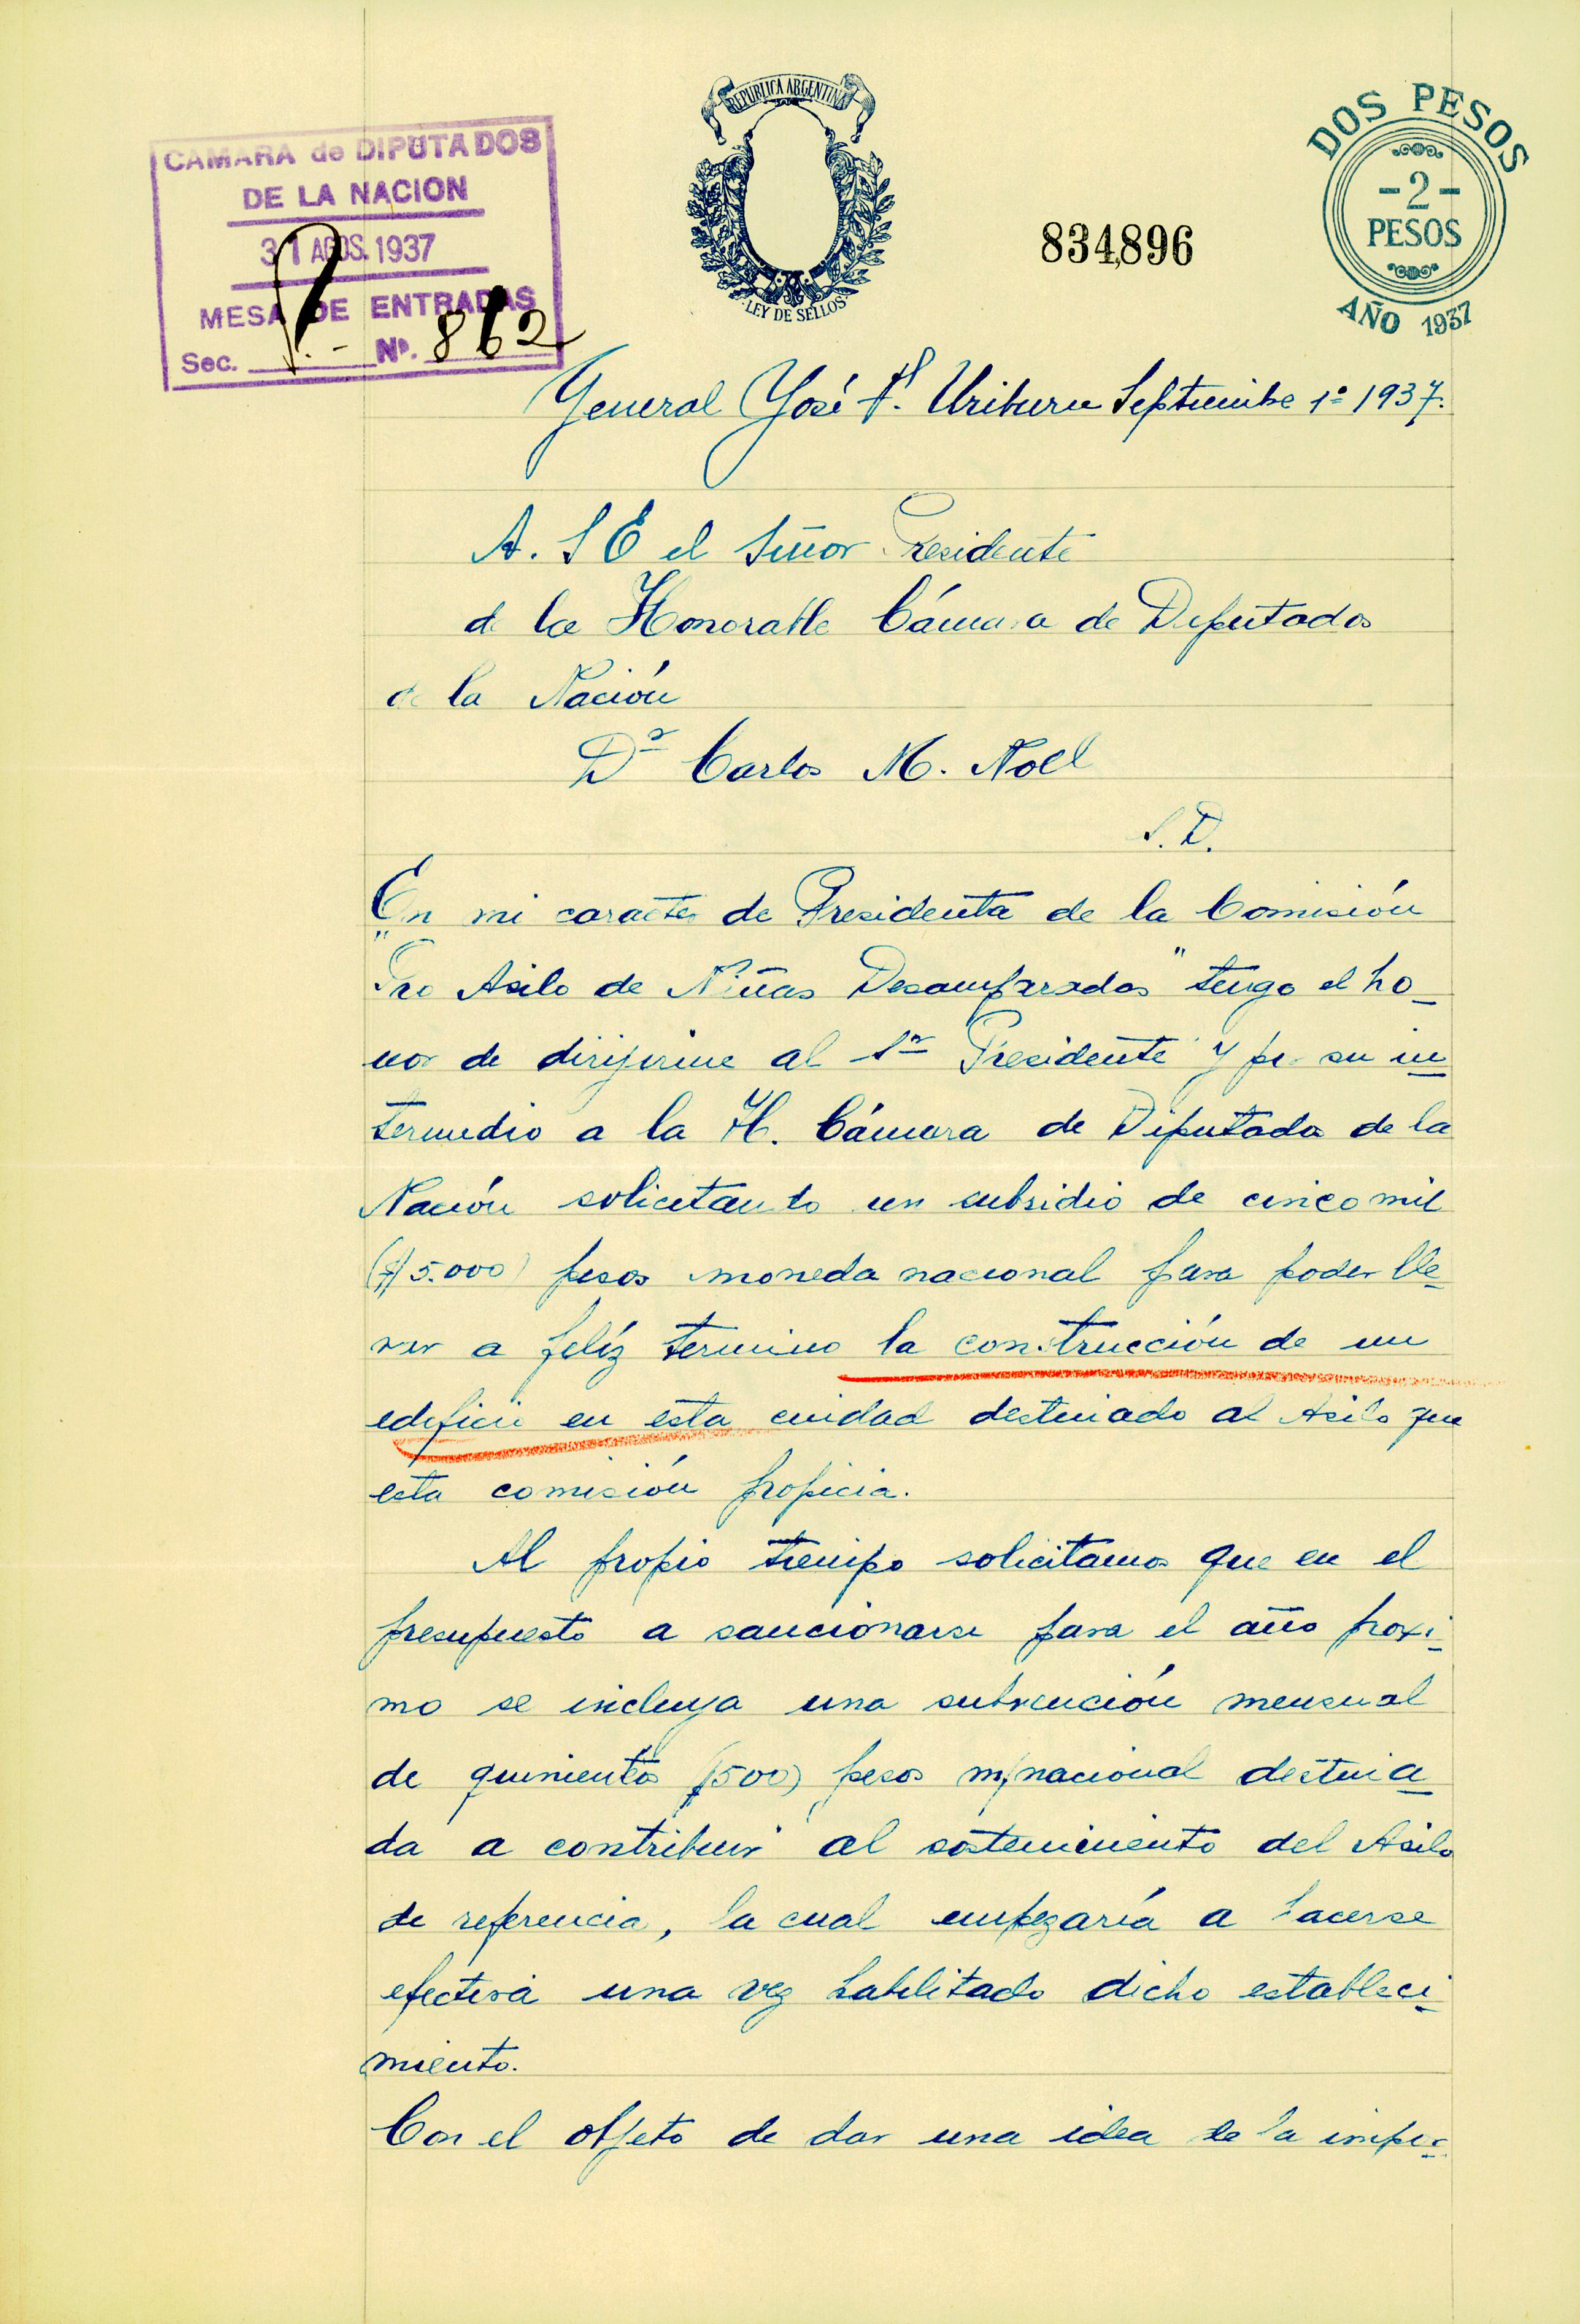 REPUBLICA ARGENTINA
LEY DE SELLOS
CAMARA de DIPUTADOS
DE LA NACION
31 AGOS. 1937
MESA DE ENTRADAS
Sec. Nº. 862
834,896
DOS PESOS
-2-
PESOS
AÑO 1937
General José F. Uriburu Septiembre 1º 1937.
A. S E el Señor Presidente
de la Honorable Cámara de Diputados
de la Nación
Dr Carlos M. Noel
S. D.
En mi caracter de Presidenta de la Comisión
"Pro Asilo de Niñas Desamparadas" tengo el ho-
nor de dirijirme al Sr Presidente y por su in
termedio a la H. Cámara de Diputados de la
Nación solicitando un subsidio de cinco mil
($ 5.000) pesos moneda nacional para poder lle-
var a felíz termino la construcción de un
edificio en esta ciudad destinado al Asilo que
esta comisión propicia.
Al propio tiempo solicitamos que en el
presupuesto a sancionarse para el año proxi-
mo se incluya una subvención mensual
de quinientos ($500) pesos m/nacional destina
da a contribuir al sostenimiento del Asilo
de referencia, la cual empezaría a hacerse
efectiva una vez habilitado dicho estableci-
miento.
Con el objeto de dar una idea de la impor-